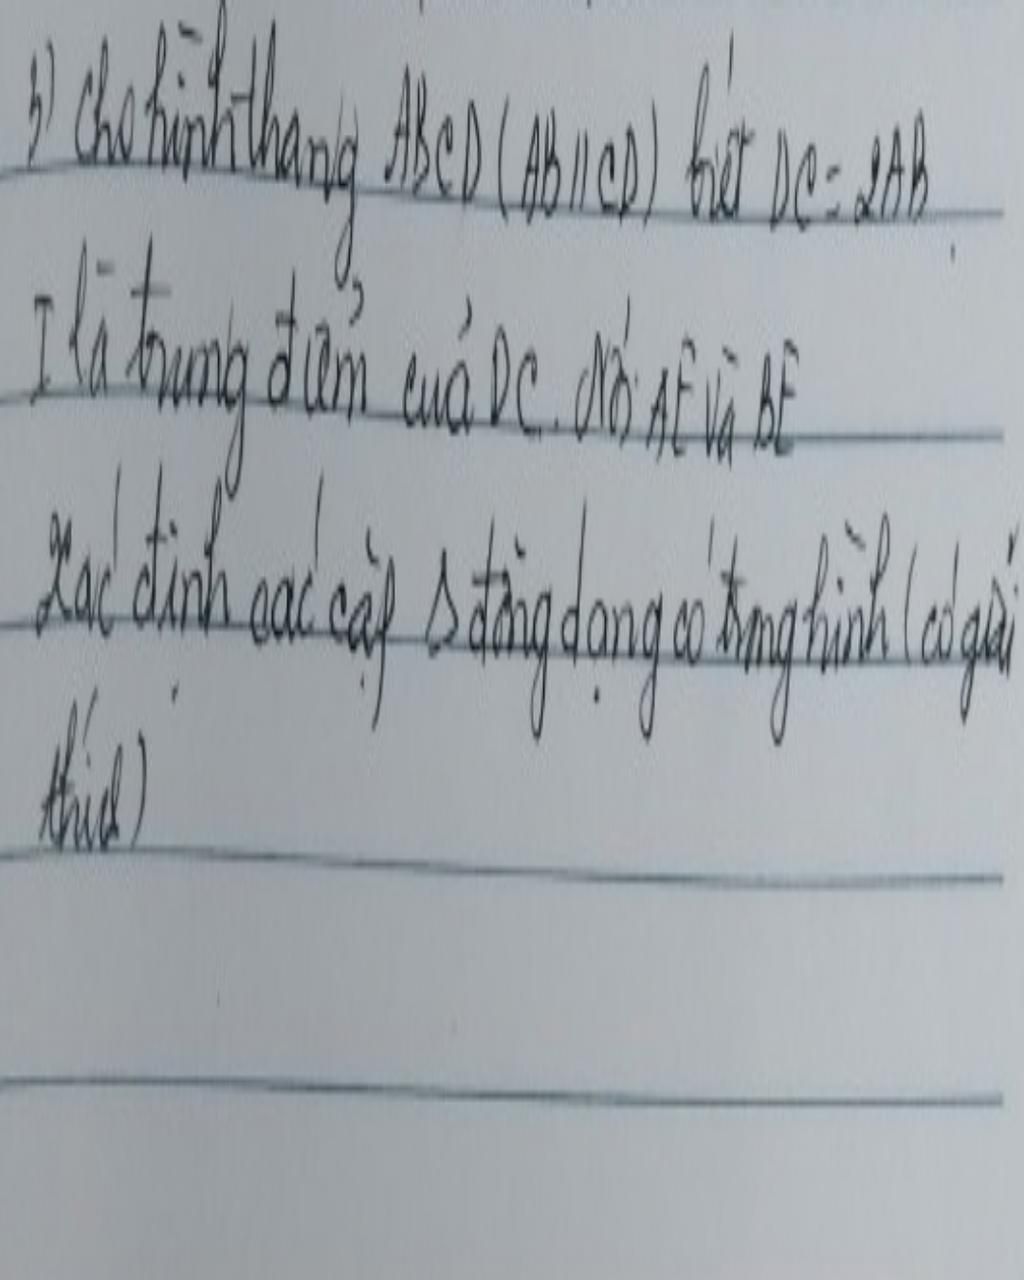 3) Cho hình thang ABCD (AB // CD) biết DC = 2AB.
I là trung điểm của DC. Nối AE và BE
Xác định các cặp Δ đồng dạng có trong hình (có giải
thích)